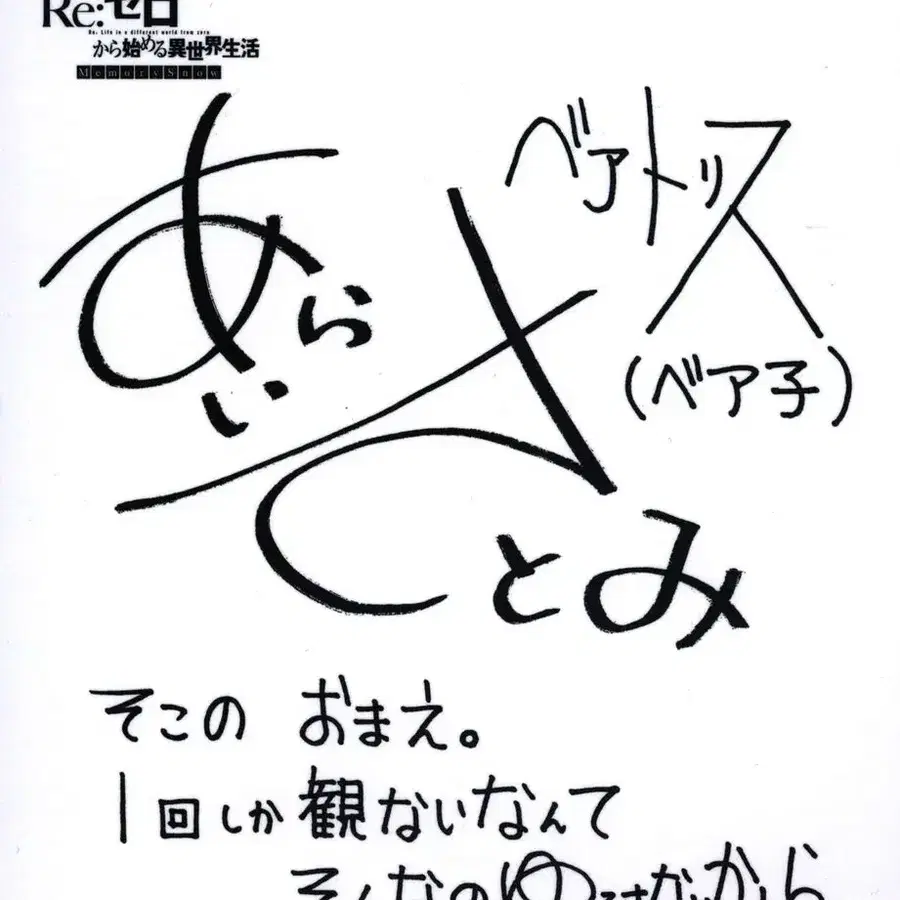 Re:ゼロ
Re: Life in a different world from zero
から始める異世界生活
Memory Snow
ベアトリス
(ベア子)
あらい
さとみ
そこの おまえ。
1回しか観ないなんて
そんなのゆるさないから